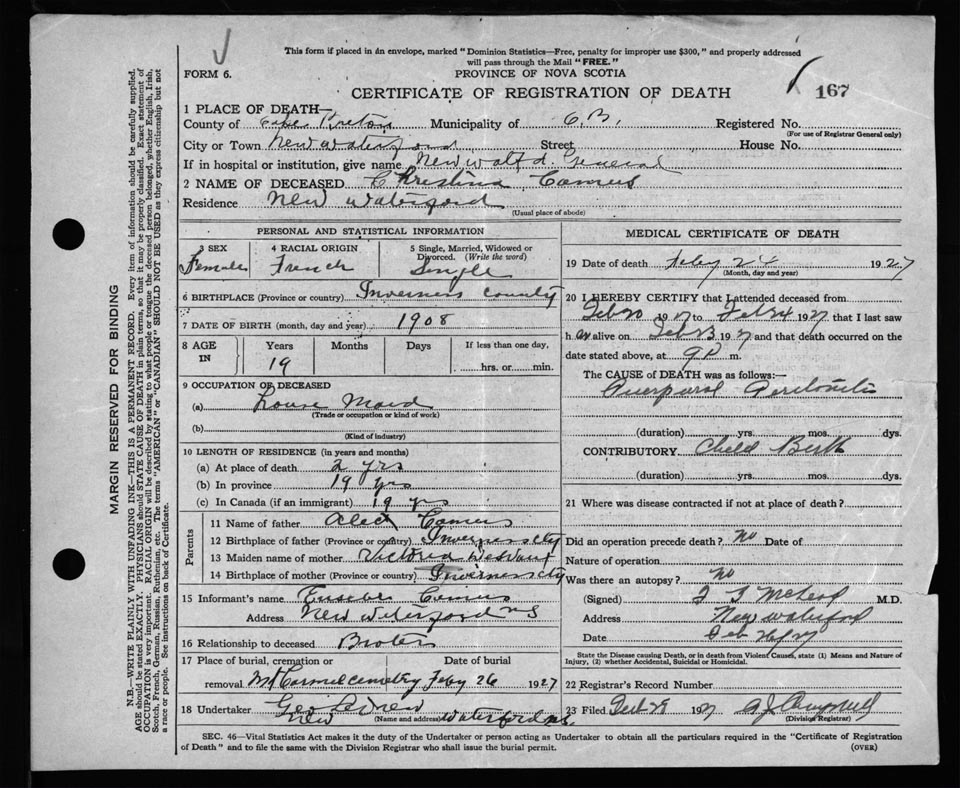 This form if placed in an envelope, marked "Dominion Statistics—Free, penalty for improper use $300," and properly addressed
will pass through the Mail "FREE."
FORM 6.
PROVINCE OF NOVA SCOTIA
CERTIFICATE OF REGISTRATION OF DEATH
167
MARGIN RESERVED FOR BINDING
N.B.—WRITE PLAINLY WITH UNFADING INK—THIS IS A PERMANENT RECORD. Every item of information should be carefully supplied.
AGE should be stated EXACTLY. PHYSICIANS should STATE CAUSE OF DEATH in plain terms, so that it may be properly classified. Exact statement of
OCCUPATION is very important. RACIAL ORIGIN will be described by stating to what people or tongue the deceased person belonged, whether English, Irish,
Scotch, French, German, Russian, Ruthenian, etc. The terms "AMERICAN" or "CANADIAN" SHOULD NOT BE USED as they express citizenship but not
a race or people. See instructions on back of Certificate.
1 PLACE OF DEATH—
County of Cape Breton Municipality of C.B. Registered No.
(For use of Registrar General only)
City or Town New Waterford Street House No.
If in hospital or institution, give name New Watfd. General
2 NAME OF DECEASED Christina Camus
Residence New Waterford
(Usual place of abode)
PERSONAL AND STATISTICAL INFORMATION
3 SEX Female
4 RACIAL ORIGIN French
5 Single, Married, Widowed or Divorced. (Write the word) Single
6 BIRTHPLACE (Province or country) Inverness County
7 DATE OF BIRTH (month, day and year) 1908
8 AGE IN Years 19 Months Days If less than one day, hrs. or min.
9 OCCUPATION OF DECEASED
(a) House Maid
(Trade or occupation or kind of work)
(b)
(Kind of industry)
10 LENGTH OF RESIDENCE (in years and months)
(a) At place of death 2 yrs
(b) In province 19 yrs
(c) In Canada (if an immigrant) 19 yrs
Parents
11 Name of father Alex Camus
12 Birthplace of father (Province or country) Inverness cty
13 Maiden name of mother Victoria
14 Birthplace of mother (Province or country) Inverness cty
15 Informant's name Camus
Address New Waterford NS
16 Relationship to deceased Broter
17 Place of burial, cremation or removal Mt Carmel cemetry Date of burial Feby 26 1927
18 Undertaker Geo
(Name and address) New Waterford NS
MEDICAL CERTIFICATE OF DEATH
19 Date of death Feby 24 1927
(Month, day and year)
20 I HEREBY CERTIFY that I attended deceased from
Feb 20 1927 to Feb 24 1927 that I last saw
her alive on Feb 23 1927 and that death occurred on the
date stated above, at 9 P m.
The CAUSE of DEATH was as follows:—
Puerperal Peritonitis
(duration) yrs. mos. dys.
CONTRIBUTORY Child Birth
(duration) yrs. mos. dys.
21 Where was disease contracted if not at place of death?
Did an operation precede death? No Date of
Nature of operation
Was there an autopay? no
(Signed) McLeod M.D.
Address New Waterford
Date Feb
State the Disease causing Death, or in death from Violent Causes, state (1) Means and Nature of
Injury, (2) whether Accidental, Suicidal or Homicidal.
22 Registrar's Record Number
23 Filed Feb 28 1927 A J Campbell
(Division Registrar)
SEC. 46—Vital Statistics Act makes it the duty of the Undertaker or person acting as Undertaker to obtain all the particulars required in the "Certificate of Registration
of Death" and to file the same with the Division Registrar who shall issue the burial permit.
(OVER)